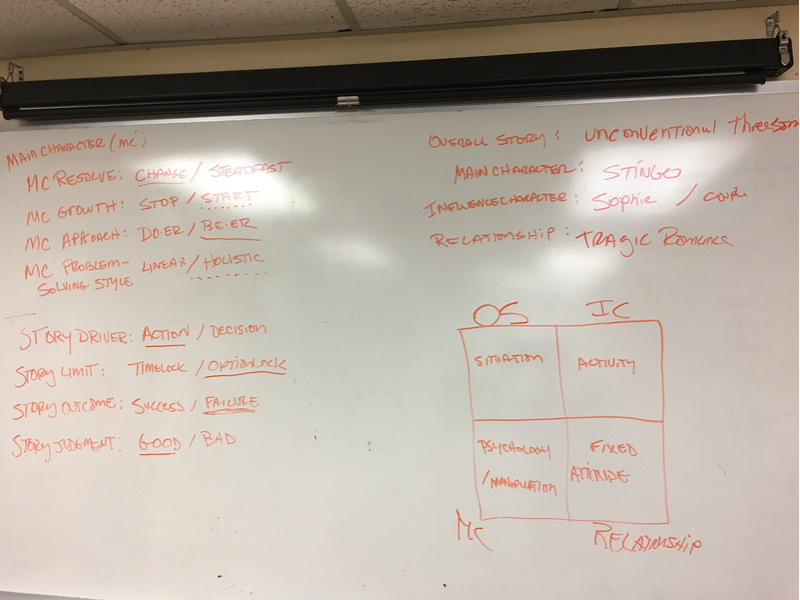 MAIN CHARACTER (MC)
MC RESOLVE: CHANGE / STEADFAST
MC GROWTH: STOP / START
MC APROACH: DO-ER / BE-ER
MC PROBLEM- LINEAR / HOLISTIC
SOLVING STYLE
STORY DRIVER: ACTION / DECISION
STORY LIMIT: TIMELOCK / OPTIONLOCK
STORY OUTCOME: SUCCESS / FAILURE
STORY JUDGMENT: GOOD / BAD
OVERALL STORY: UNCONVENTIONAL Threesom
MAIN CHARACTER: STINGO
INFLUENCE CHARACTER: Sophie /
RELATIONSHIP: TRAGIC Romance
OS IC
SITUATION ACTIVITY
PSYCHOLOGY FIXED
/MANIPULATION ATTITUDE
MC RELATIONSHIP